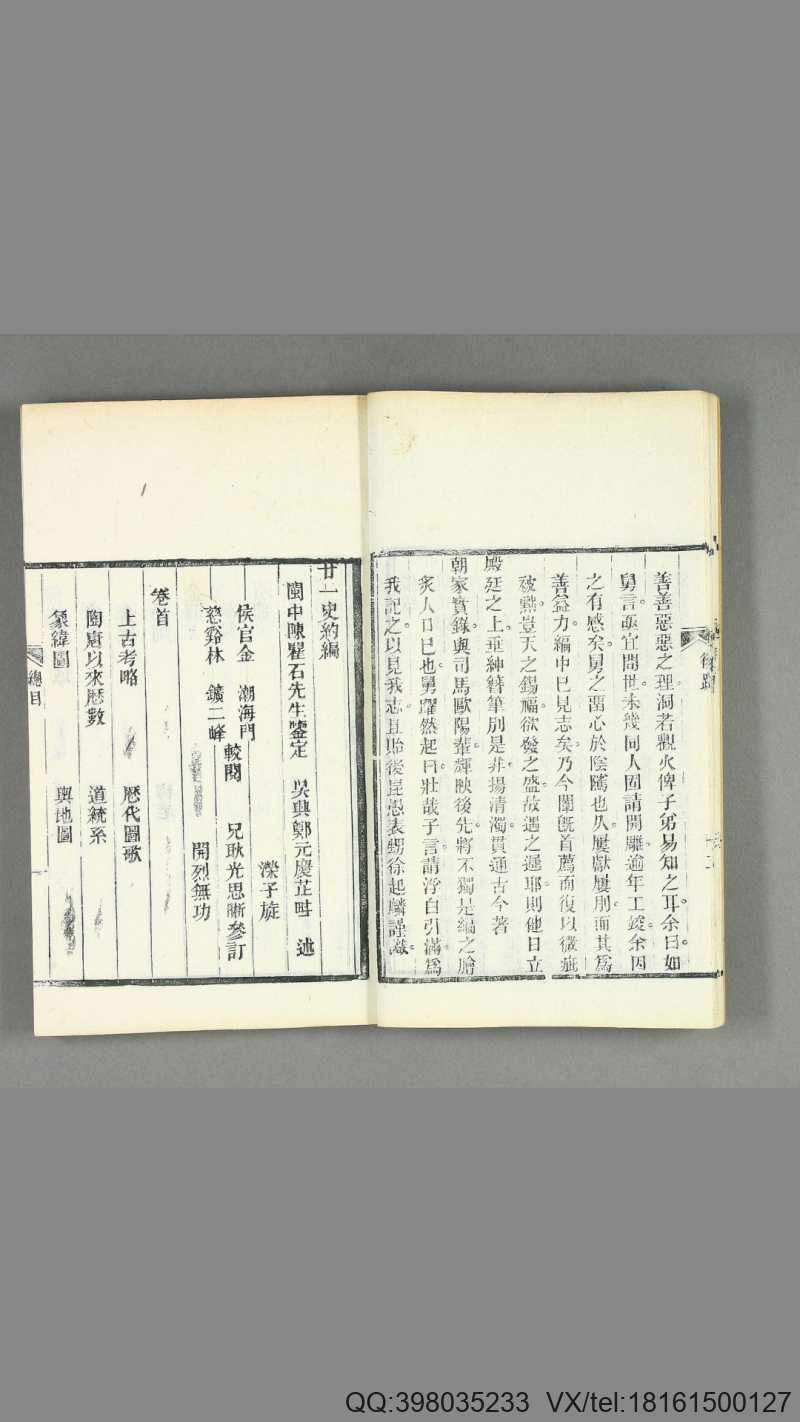 善善惡惡之理洞若觀火俾子弟易知之耳余曰如
舅言亟宜問世未幾同人固請開雕逾年工竣余因
之有感矣舅之留心於陰騭也久屢獻屢刖而其為
善益力編中已見志矣乃今闈旣首薦而復以微疵
被黜豈天之錫福欲發之盛故遇之遲耶則他日立
殿廷之上垂紳簪筆別是非揚清濁貫通古今著
朝家實錄與司馬歐陽輩輝映後先將不獨是編之膾
炙人口已也舅躍然起曰壯哉子言請浮白引滿為
我記之以見我志且貽後昆愚表甥徐起麟謹識
後跋
二
廿一史約編
閩中陳瞿石先生鑒定 吳興鄭元慶芷畦 述
濴子旋
侯官金 潮海門
兄耿光思晰參訂
較閱
慈谿林 鑛二峰
開烈無功
卷首
上古考略 歷代圖歌
陶唐以來歷數 道統系
象緯圖 輿地圖
總目
一
QQ:398035233 VX/tel:18161500127